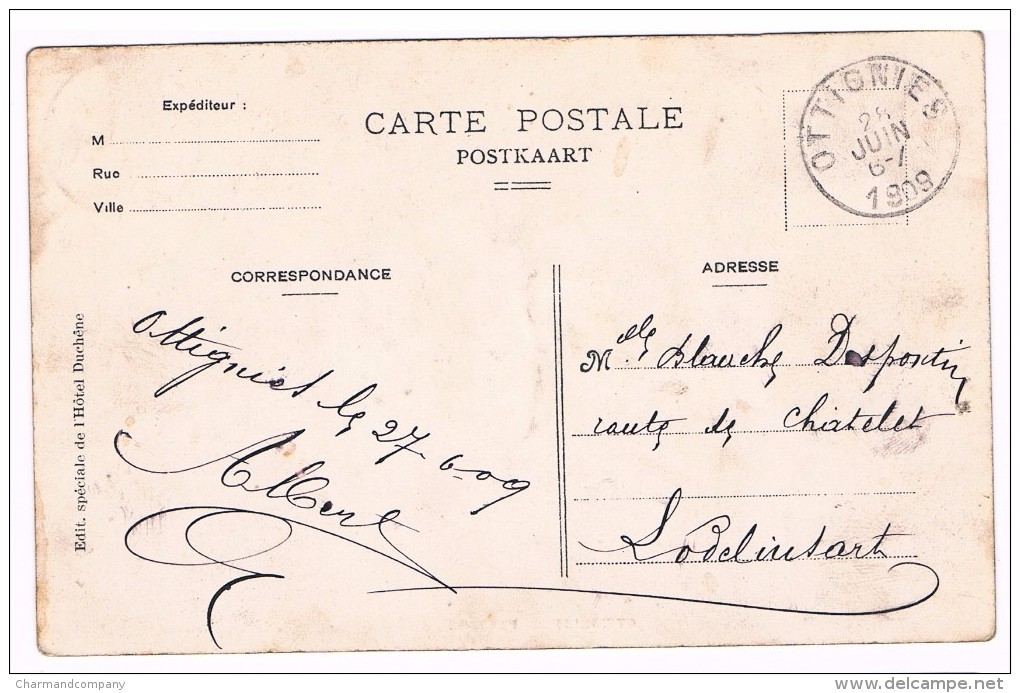 Expéditeur :
M
Rue
Ville
CARTE POSTALE
POSTKAART
OTTIGNIES
28
JUIN
6-7
1909
CORRESPONDANCE
ADRESSE
Ottignies le 27-6-09
Albert
Mlle Blanche Despontin
route de Chatelet
Lodelinsart
Edit. spéciale de l'Hôtel Duchêne
Charmandcompany
www.delcampe.net